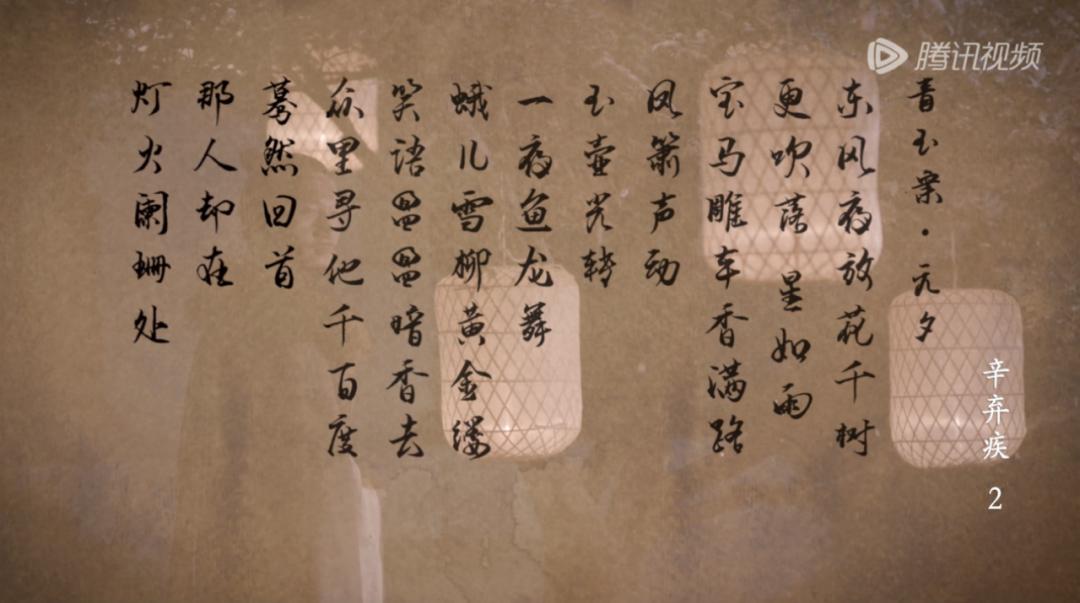 腾讯视频
青玉案·元夕
辛弃疾 2
东风夜放花千树
更吹落 星如雨
宝马雕车香满路
凤箫声动
玉壶光转
一夜鱼龙舞
蛾儿雪柳黄金缕
笑语盈盈暗香去
众里寻他千百度
蓦然回首
那人却在
灯火阑珊处